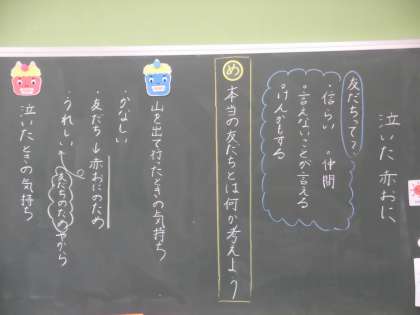 泣いた赤おに
友だちって?
・信らい ・仲間
・言えないことが言える
・けんかもする
め 本当の友だちとは何か考えよう
山を出て行ったときの気持ち
・かなしい
・友だち→赤おにのため
・うれしい
友だちのためだから
泣いたときの気持ち